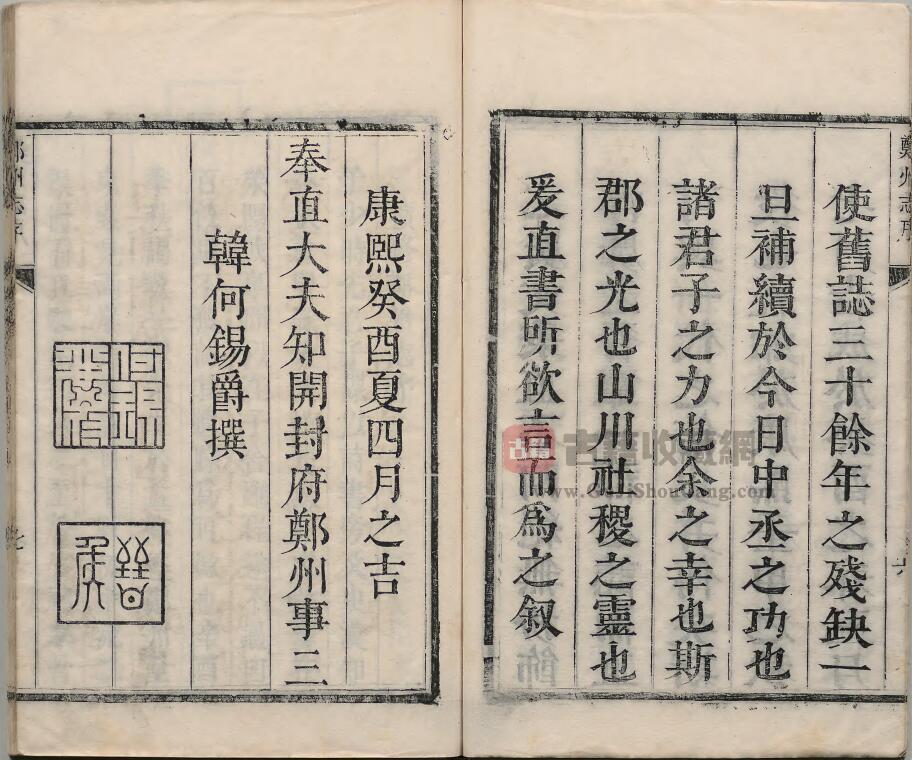 使舊誌三十餘年之殘缺一
旦補續於今日中丞之功也
諸君子之力也余之幸也斯
郡之光也山川社稷之靈也
爰直書所欲言而為之叙
康熙癸酉夏四月之吉
奉直大夫知開封府鄭州事三
韓何錫爵撰
鄭州志序
六
鄭州志序
七
古籍收藏網
www.GuJiShouCang.com